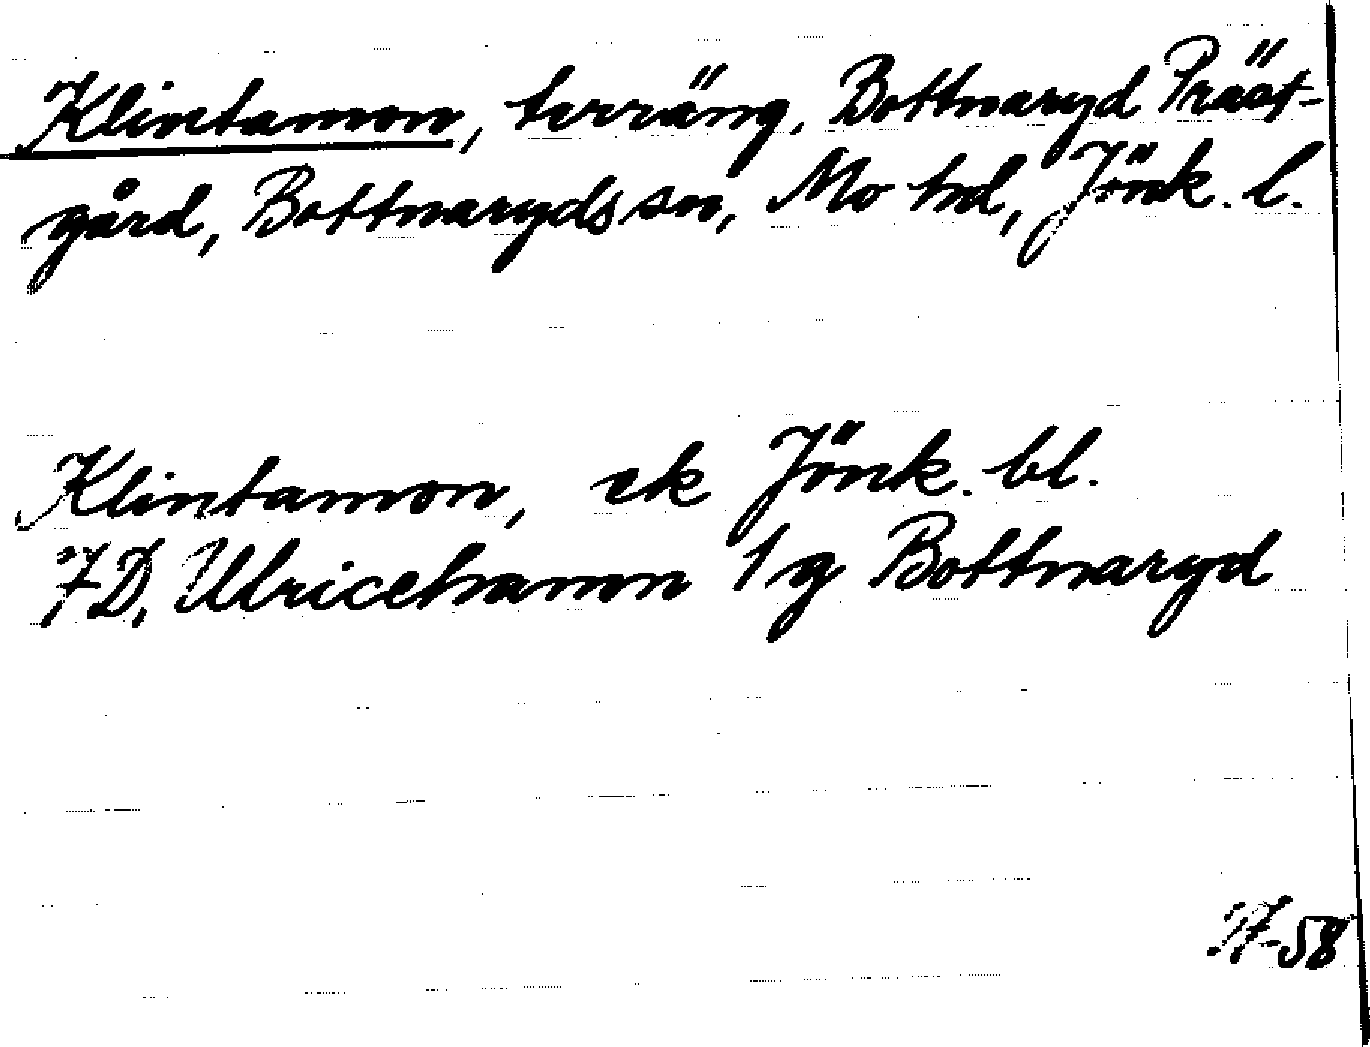 Klintamon, terräng, Bottnaryd Präst-
gård, Bottnaryds sn, Mo hd, Jönk. l.
Klintamon, ek Jönk. bl.
7D, Ulricehamn 1 g Bottnaryd
-58